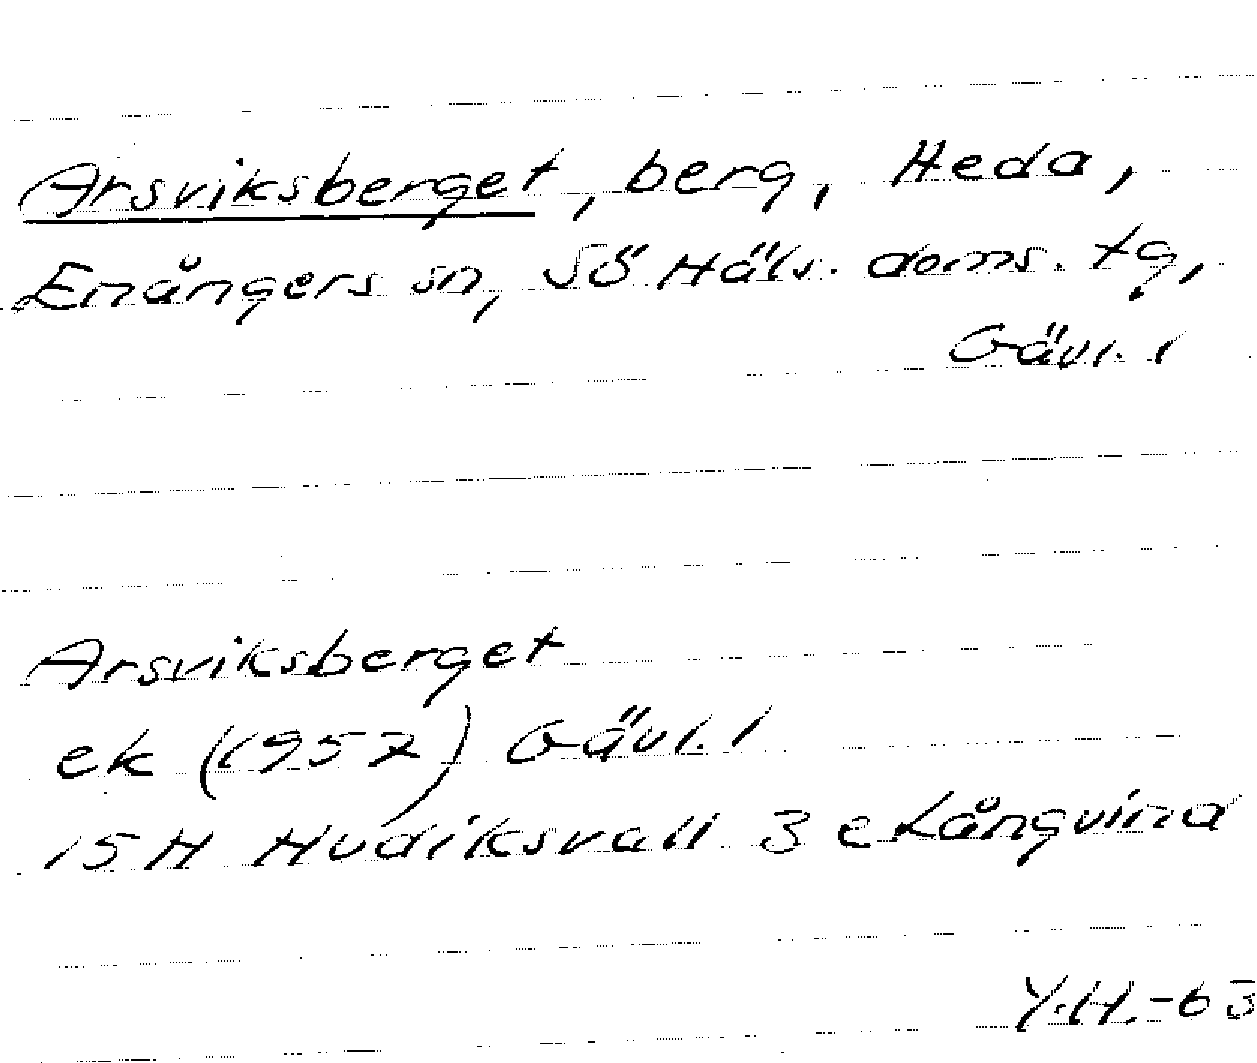 Arsviksberget, berg, Heda,
Enångers sn, Sö Häls. doms. tg,
Gävl. l
Arsviksberget
ek (1957) Gävl. l
15H Hudiksvall 3 e Långvind
Y.H.-63